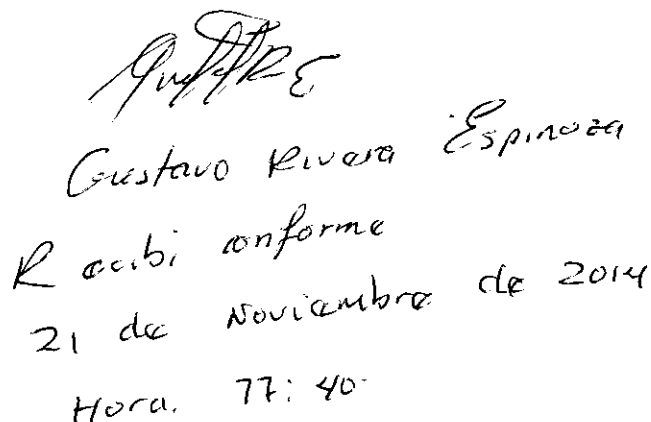 Gustavo Rivera Espinoza
Recibi conforme
21 de Noviembre de 2014
Hora. 17:40